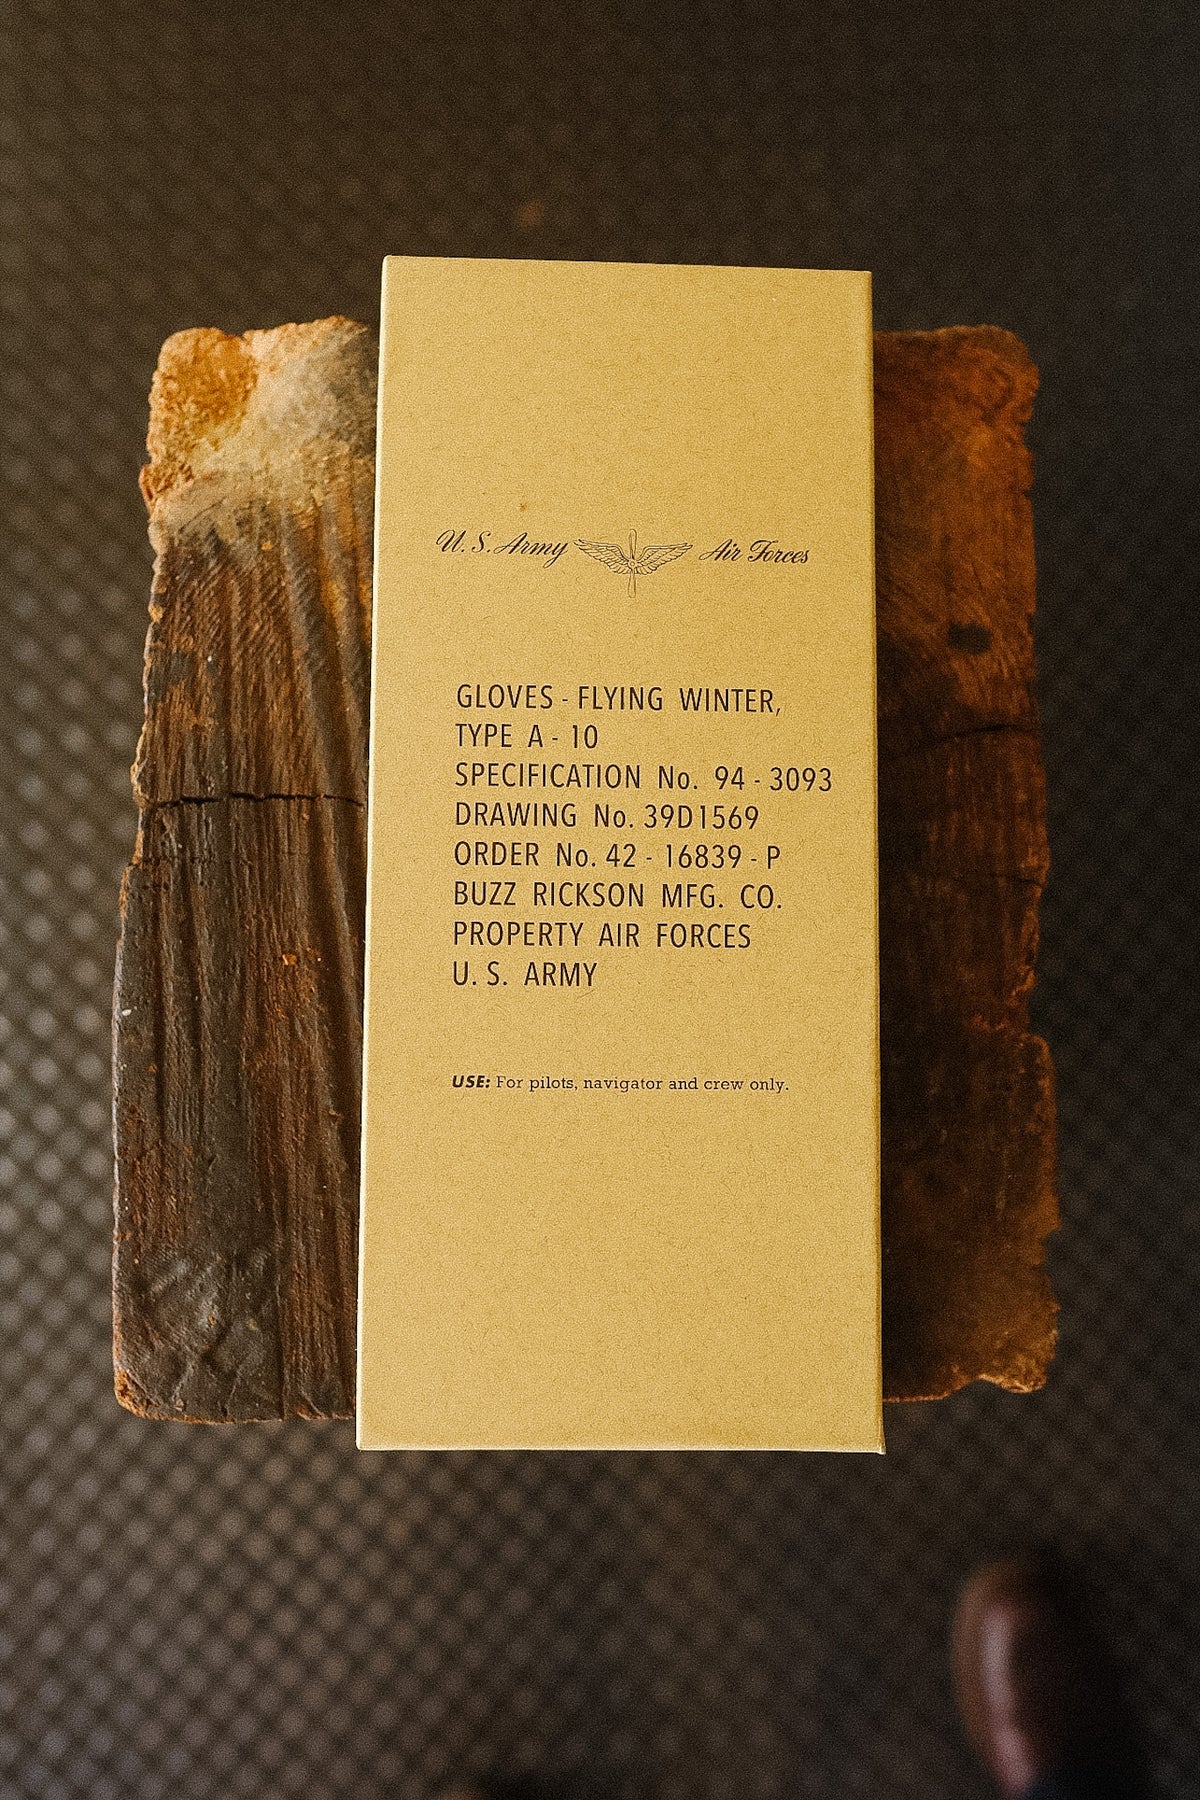 U. S. Army Air Forces
GLOVES - FLYING WINTER,
TYPE A - 10
SPECIFICATION No. 94 - 3093
DRAWING No. 39D1569
ORDER No. 42 - 16839 - P
BUZZ RICKSON MFG. CO.
PROPERTY AIR FORCES
U. S. ARMY
USE: For pilots, navigator and crew only.